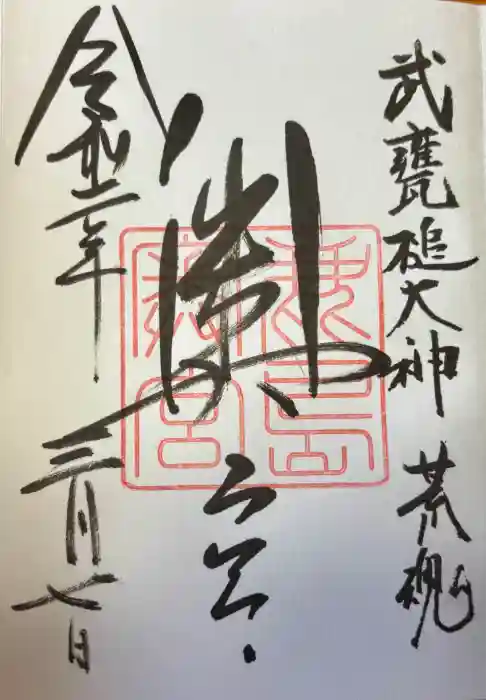 武甕槌大神 荒魂
奥宮
鹿島
奥宮
令和二年 三月七日